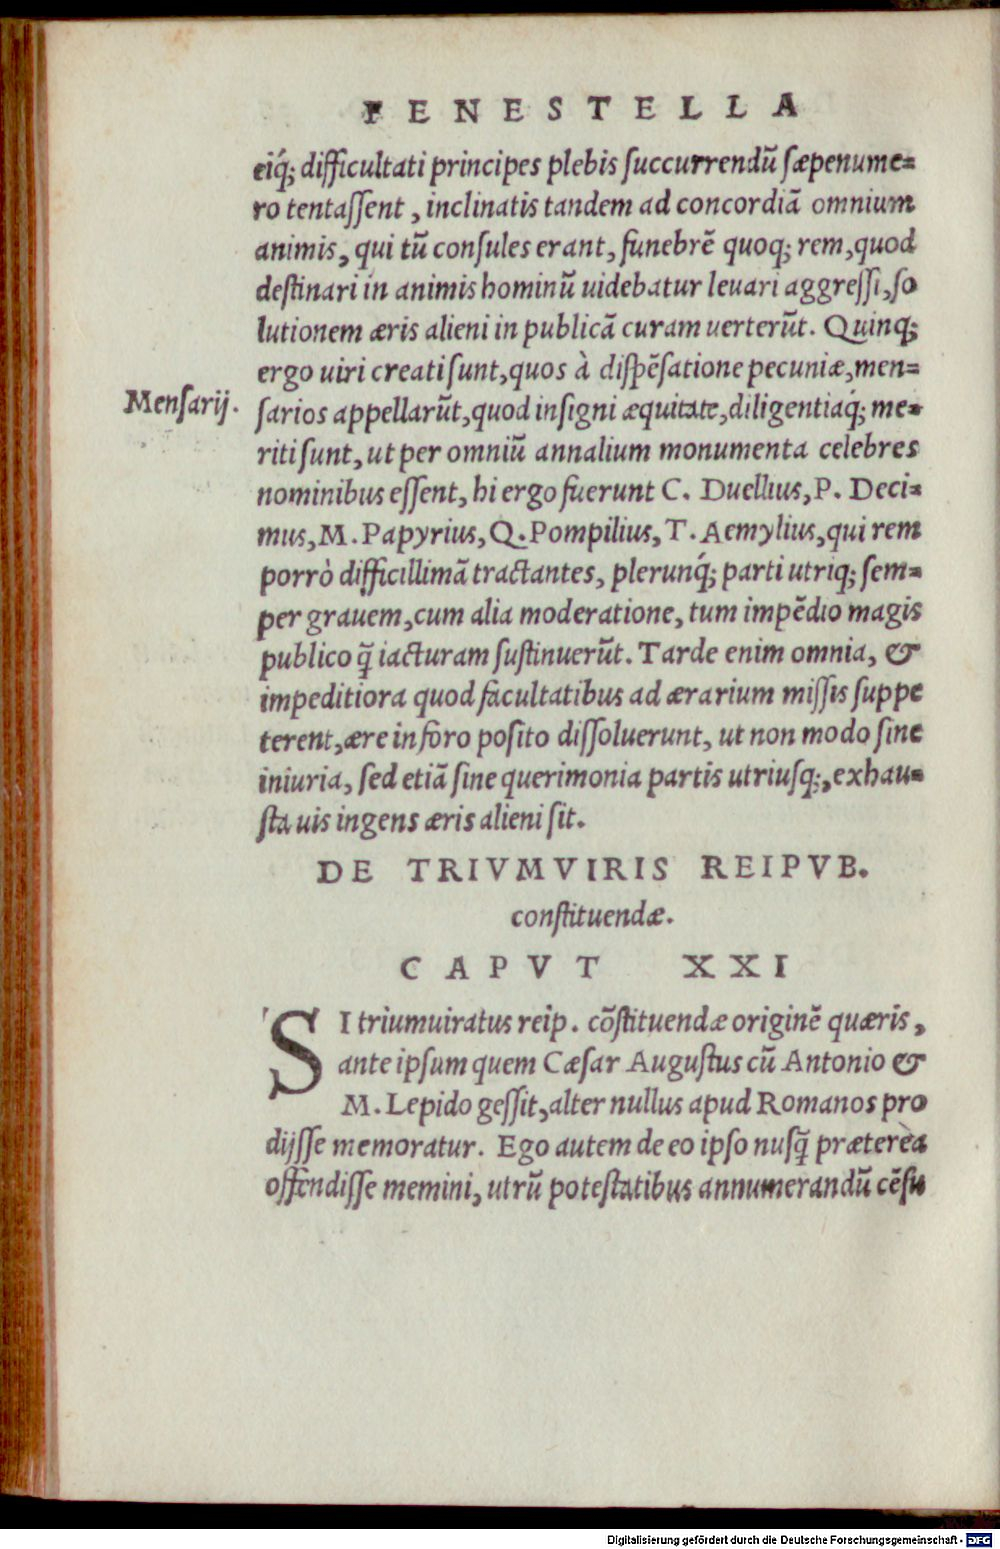 FENESTELLA
eiq́; difficultati principes plebis succurrendũ sæpenume-
ro tentassent, inclinatis tandem ad concordiã omnium
animis, qui tũ consules erant, funebrẽ quoq; rem, quod
destinari in animis hominũ uidebatur leuari aggressi, so
lutionem æris alieni in publicã curam uerterũt. Quinq;
ergo uiri creati sunt, quos à dispẽsatione pecuniæ, men-
Mensarij.
sarios appellarũt, quod insigni æquitate, diligentiaq́; me-
riti sunt, ut per omniũ annalium monumenta celebres
nominibus essent, hi ergo fuerunt C. Duellius, P. Deci-
mus, M. Papyrius, Q. Pompilius, T. Aemylius, qui rem
porrò difficillimã tractantes, plerunq́; parti utriq; sem-
per grauem, cum alia moderatione, tum impẽdio magis
publico q̃ iacturam sustinuerũt. Tarde enim omnia, &
impeditiora quod facultatibus ad ærarium missis suppe
terent, ære in foro posito dissoluerunt, ut non modo sine
iniuria, sed etiã sine querimonia partis utriusq;, exhau-
sta uis ingens æris alieni sit.
DE TRIVMVIRIS REIPVB.
constituendæ.
CAPVT XXI
SI triumuiratus reip. cõstituendæ originẽ quæris,
ante ipsum quem Cæsar Augustus cũ Antonio &
M. Lepido gessit, alter nullus apud Romanos pro
dijsse memoratur. Ego autem de eo ipso nusq̃ præterèa
offendisse memini, utrũ potestatibus annumerandũ cẽsu
Digitalisierung gefördert durch die Deutsche Forschungsgemeinschaft - DFG